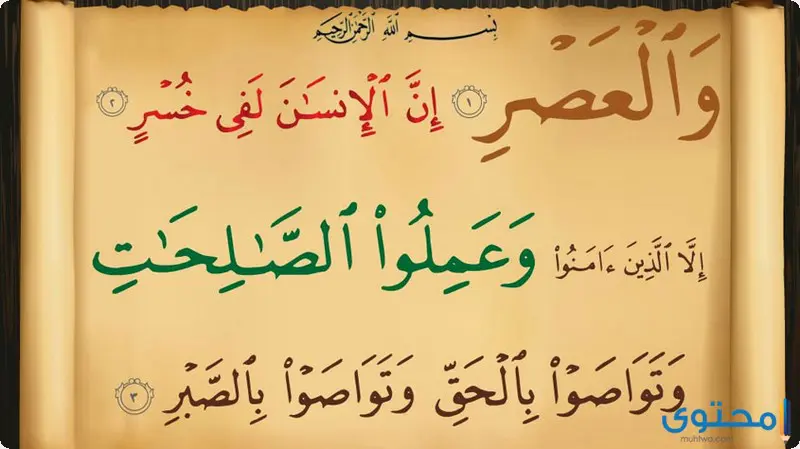 بِسْمِ اللَّهِ الرَّحْمَٰنِ الرَّحِيمِ
وَٱلْعَصْرِ ١ إِنَّ ٱلْإِنسَٰنَ لَفِى خُسْرٍ ٢
إِلَّا ٱلَّذِينَ ءَامَنُوا۟ وَعَمِلُوا۟ ٱلصَّٰلِحَٰتِ
وَتَوَاصَوْا۟ بِٱلْحَقِّ وَتَوَاصَوْا۟ بِٱلصَّبْرِ ٣
محتوى
muhtwa.com